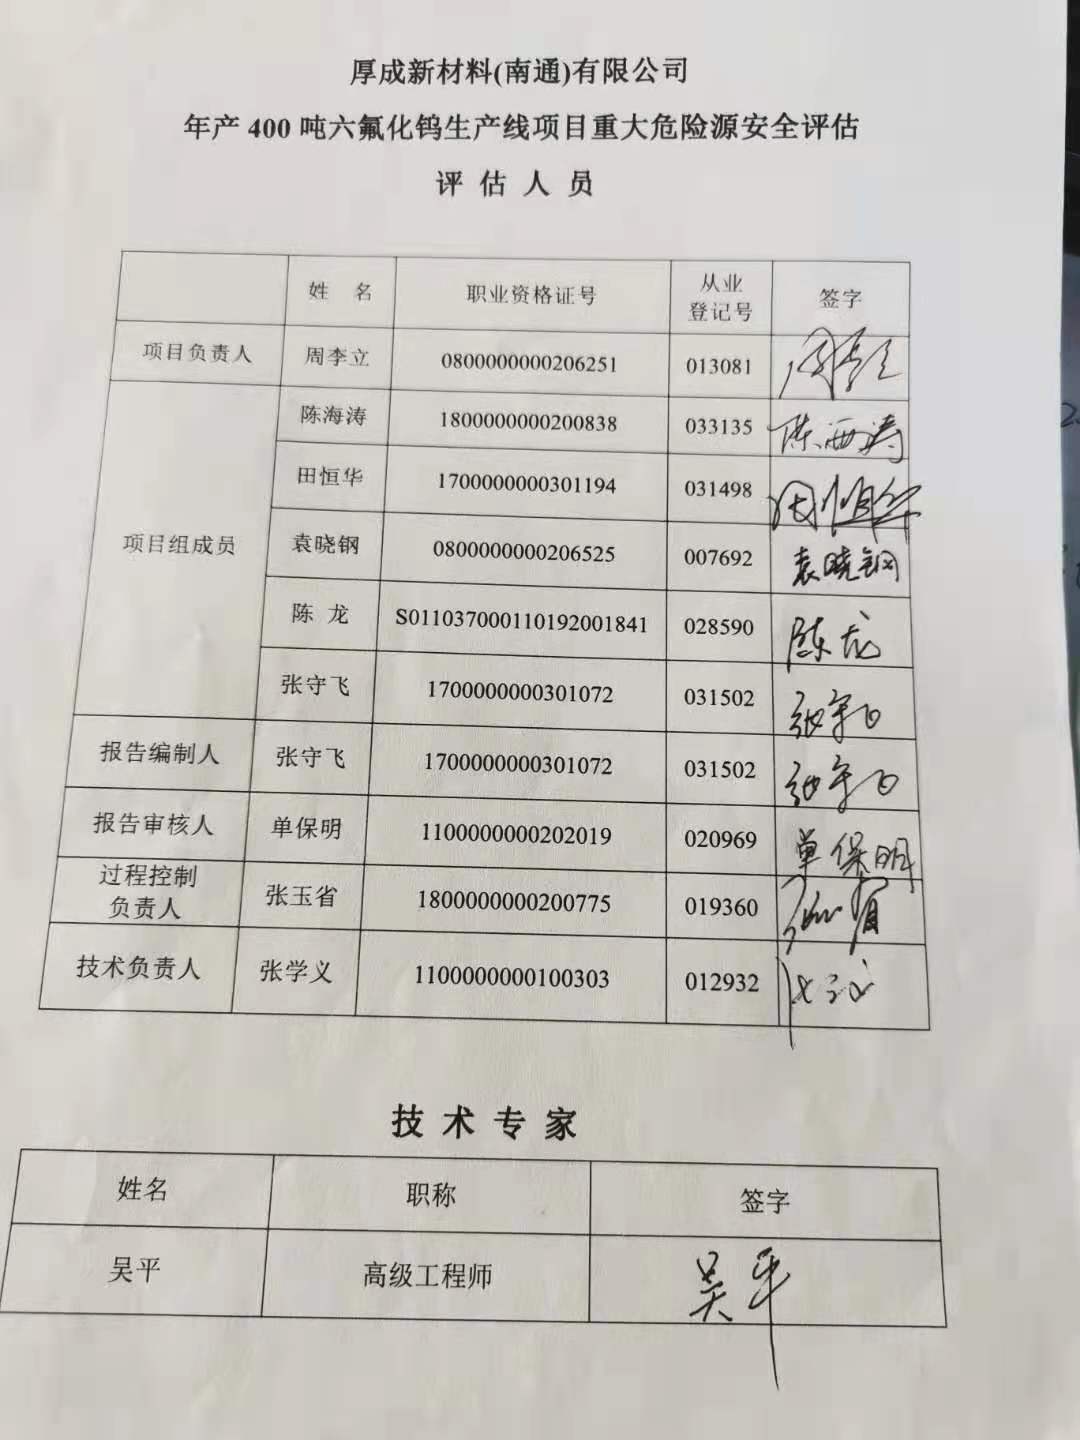 厚成新材料(南通)有限公司
年产 400 吨六氟化钨生产线项目重大危险源安全评估
评 估 人 员
姓 名 职业资格证号 从业登记号 签字
项目负责人 周李立 0800000000206251 013081
项目组成员 陈海涛 1800000000200838 033135 陈海涛
田恒华 1700000000301194 031498 田恒华
袁晓钢 0800000000206525 007692 袁晓钢
陈 龙 S011037000110192001841 028590 陈龙
张守飞 1700000000301072 031502 张守飞
报告编制人 张守飞 1700000000301072 031502 张守飞
报告审核人 单保明 1100000000202019 020969 单保明
过程控制负责人 张玉省 1800000000200775 019360
技术负责人 张学义 1100000000100303 012932
技 术 专 家
姓名 职称 签字
吴平 高级工程师 吴平